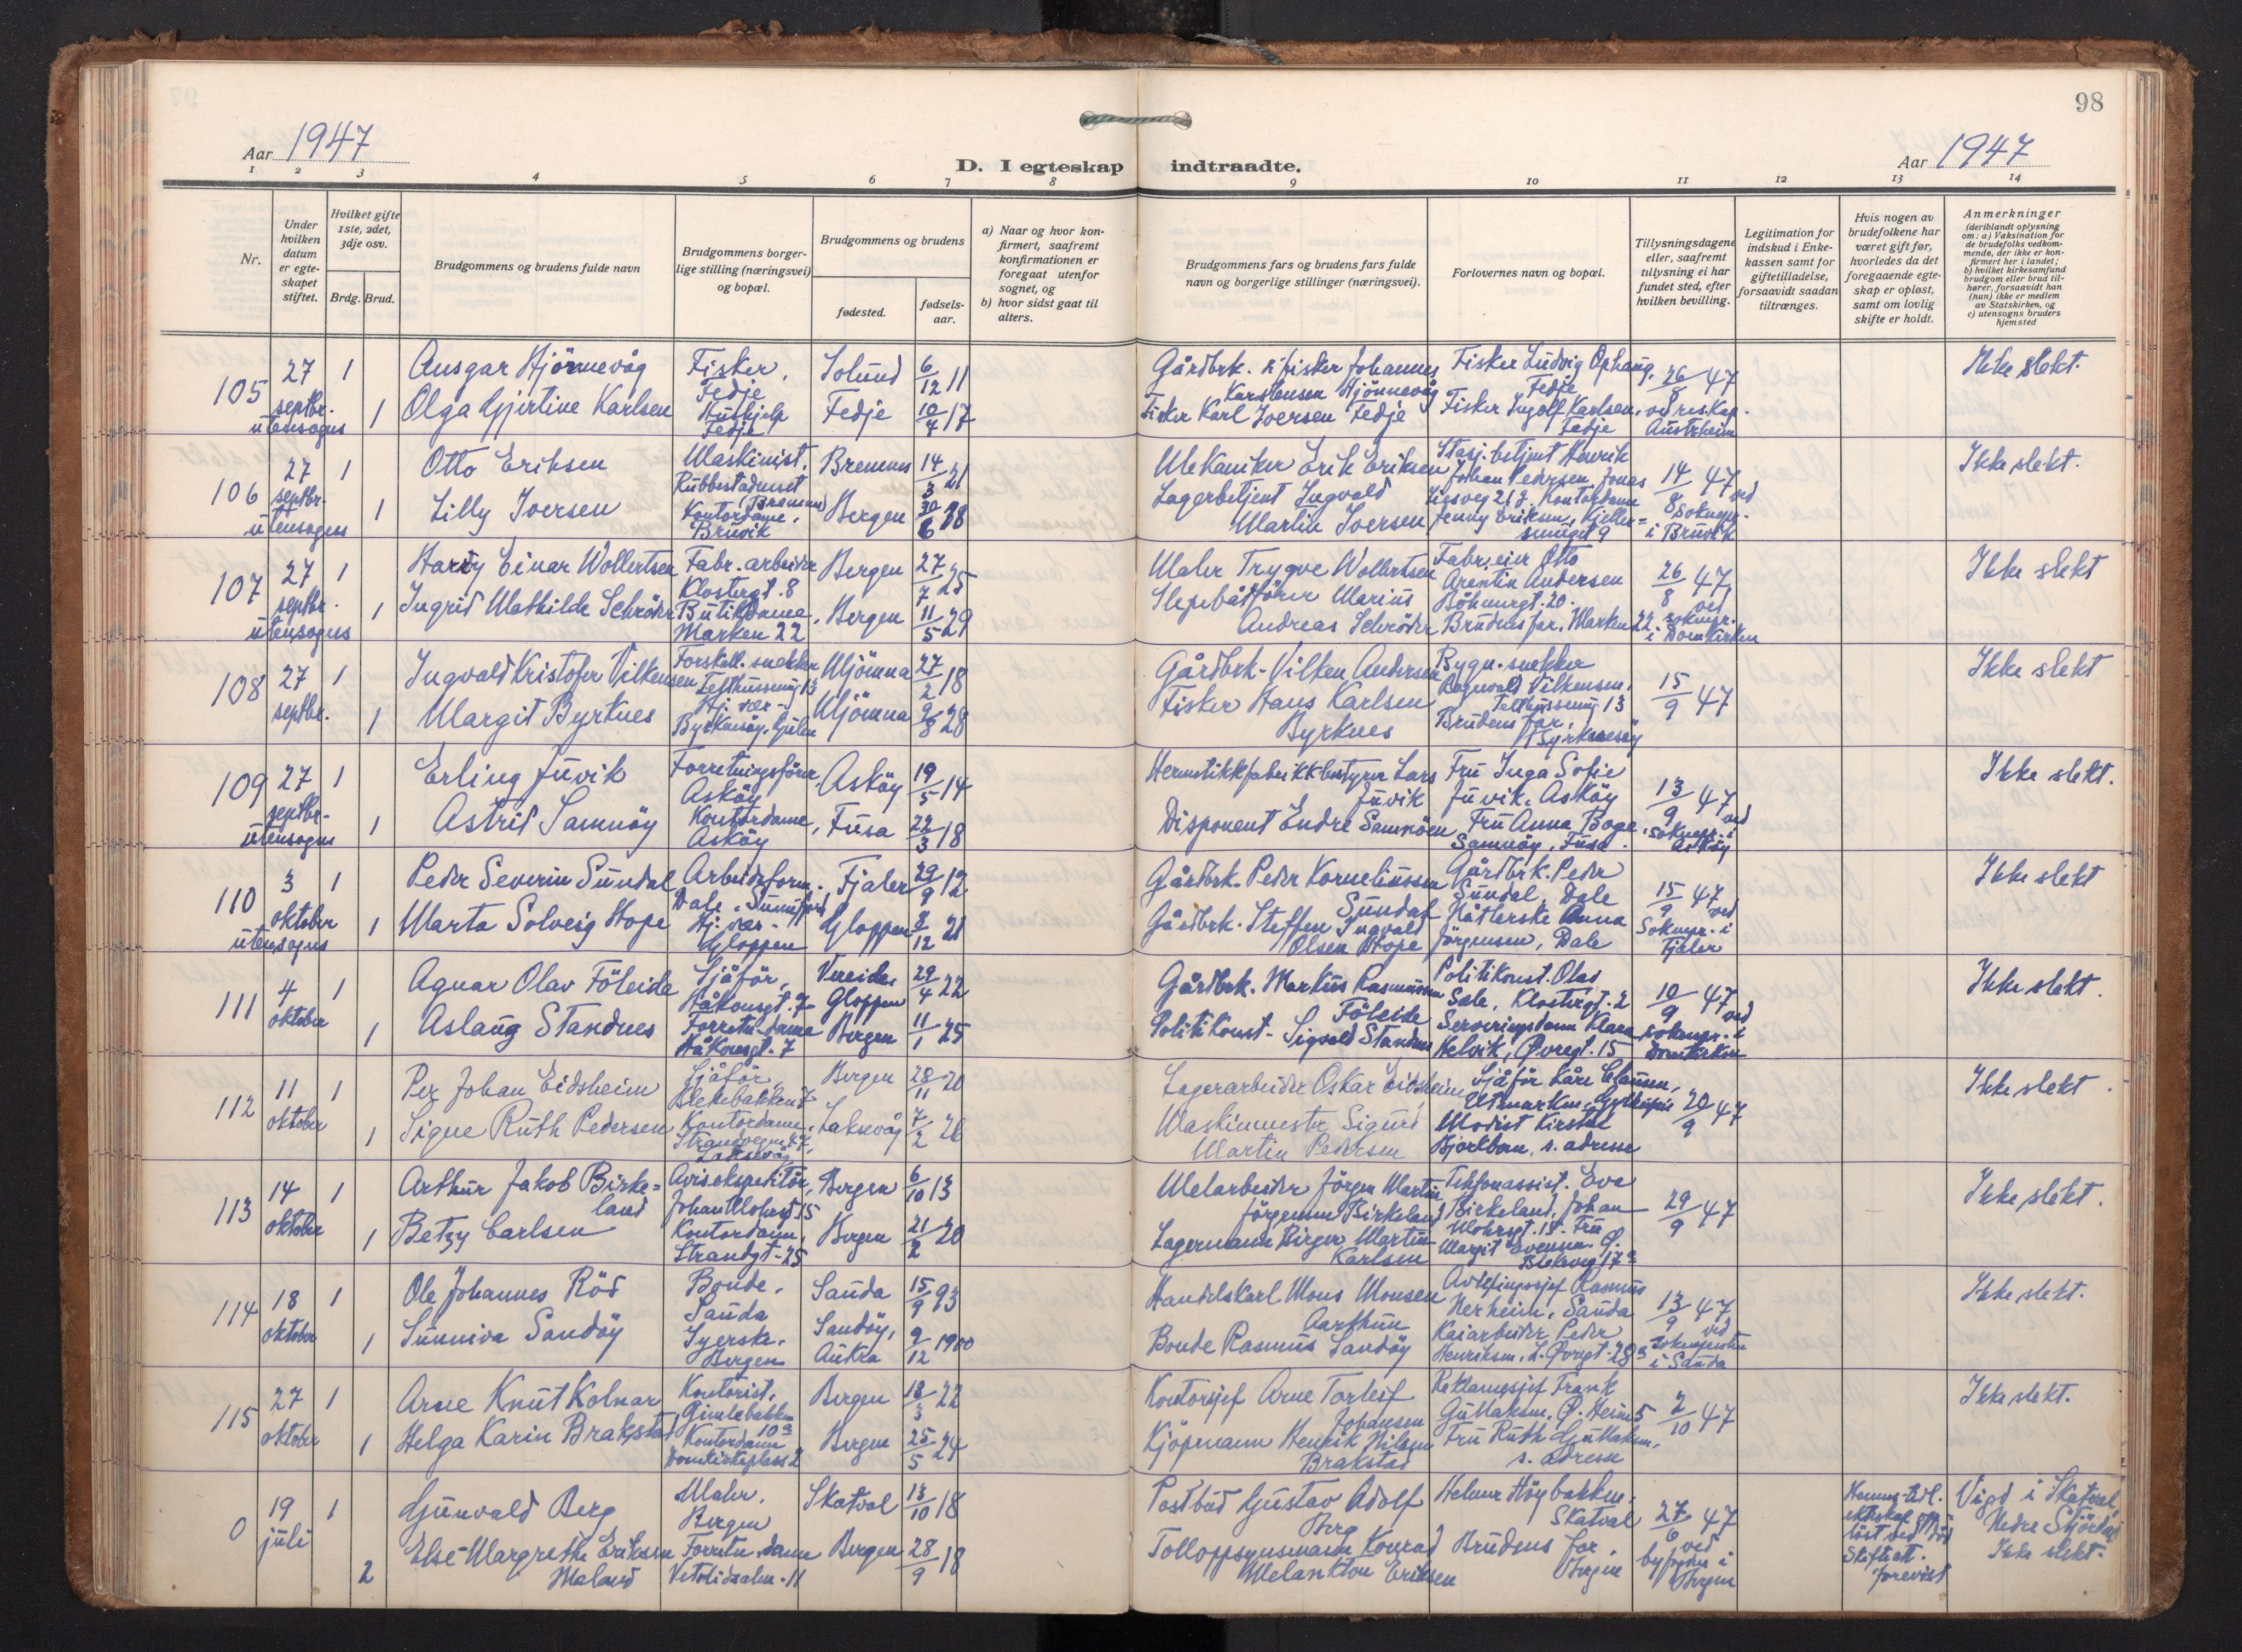 98
Aar 1947
D. I egteskap indtraadte.
Aar 1947
1 2 3 4 5 6 7 8 9 10 11 12 13 14
Nr.
Under hvilken datum er egteskapet stiftet.
Hvilket gifte 1ste, 2det, 3dje osv.
Brdg. Brud.
Brudgommens og brudens fulde navn
Brudgommens borgerlige stilling (næringsvei) og bopæl.
Brudgommens og brudens
fødested.
fødselsaar.
a) Naar og hvor konfirmert, saafremt konfirmationen er foregaat utenfor sognet, og
b) hvor sidst gaat til alters.
Brudgommens fars og brudens fars fulde navn og borgerlige stillinger (næringsvei).
Forlovernes navn og bopæl.
Tillysningsdagene eller, saafremt tulysning ei har fundet sted, efter hvilken bevilling.
Legitimation for indskud i Enkekassen samt for giftetilladelse, forsaavidt saadan tiltrænges.
Hvis nogen av brudefolkene har været gift før, hvorledes da det foregaaende egteskap er opløst, samt om lovlig skifte er holdt.
Anmerkninger
(deriblandt oplysning om: a) Vaksination for de brudefolks vedkommende, der ikke er konfirmert her i landet; b) hvilket kirkesamfund brudgom eller brud tilhører, forsaavidt han (hun) ikke er medlem av Statskirken, og c) utensogns bruders hjemsted
105 27 septbr. utensogns 1 Ansgar Hjönnevåg Fisker, Fedje Solund 6/12 11 Gårdbrk. & fisker Johannes Karstensen Hjönnevåg Fisker Ludvig Ophaug, Fedje 26/8 47 ved res.kap. Austrheim Ikke slekt.
1 Olga Gjertine Karlsen Hushjelp Fedje Fedje 10/7 17 Fisker Karl Iversen Fedje Fisker Ingolf Karlsen, Fedje
106 27 septbr. utensogns 1 Otto Eriksen Maskinist, Rubbestadneset (Bremnes) Bremnes 14/3 21 Mekaniker Erik Eriksen Stasj.betjent Henrik Johan Pedersen, Jonas Liesveg 21 14/8 47 ved soknepr. i Bruvik Ikke slekt.
1 Lilly Iversen Kontordame, Bruvik Bergen 30/6 28 Lagerbetjent Ingvald Martin Iversen Kontordame Jenny Eriksen, Kjellersmuget 9
107 27 septbr. utensogns 1 Harry Einar Wollertsen Fabr. arbeider Klostergt. 8 Bergen 27/7 25 Maler Trygve Wollertsen Fabr.eier Otto Arentin Andersen Böhmergt. 20. 26/8 47 ved soknepr. i Domkirken Ikke slekt
1 Ingrid Mathilde Schröder Butikkdame, Marken 22 Bergen 11/5 29 Slepebåtförer Marius Andreas Schröder Brudens far, Marken 22
108 27 septbr. 1 Ingvald Kristofer Vilkensen Forskall. snekker Telthussmug 13 Mjömna 27/2 18 Gårdbrk. Vilken Andersen Bygn. snekker Ragnvald Vilkensen, Telthussmug 13 15/9 47 Ikke slekt
1 Margit Byrknes Hj. vær. Byrknesöy, Gulen Mjömna 9/8 28 Fisker Hans Karlsen Byrknes Brudens far, Byrknesöy
109 27 septbr. utensogns 1 Erling Juvik Forretningsförer Asköy Asköy 19/5 14 Hermetikkfabrikkbestyrer Lars Juvik Fru Inga Sofie Juvik, Asköy 13/9 47 ved soknepr. i Asköy Ikke slekt.
1 Astrid Samnöy Kontordame, Asköy Fusa 22/3 18 Disponent Endre Samnöen Fru Anna Boge, Samnöy, Fusa.
110 3 oktober utensogns 1 Peder Severin Sundal Arbeidsform. Dale, Sunnfjord Fjaler 29/9 12 Gårdbrk. Peder Korneliussen Sundal Gårdbrk. Peder Sundal, Dale 15/9 47 ved Soknepr. i Fjaler Ikke slekt
1 Marta Solveig Hope Hj. vær. Gloppen Gloppen 8/12 21 Gårdbrk. Steffen Ingvald Olsen Hope Anna Jörgensen, Dale
111 4 oktober 1 Agnar Olav Föleide Sjåför, Håkonsgt. 7 Vereide, Gloppen 29/4 22 Gårdbrk. Markus Rasmussen Föleide Politikonst. Olav Sale, Klostergt. 2 10/9 47 ved soknepr. i Domkirken Ikke slekt.
1 Aslaug Standnes Forretn. dame Håkonsgt. 7 Bergen 11/1 25 Politikonst. Sigvald Standnes Serveringsdame Klara Helvik, Øvregt. 15
112 11 oktober 1 Per Johan Eidsheim Sjåför, Blekebakken 7 Bergen 28/11 20 Lagerarbeider Oskar Eidsheim Sjåför Kåre Clausen, 20/9 47 Ikke slekt.
1 Signe Ruth Pedersen Kontordame, Strandvegen 47, Laksevåg Laksevåg 7/2 26 Maskinmester Sigurd Martin Pedersen Modist Kirsten Bjorkbom, s. adresse
113 14 oktober 1 Arthur Jakob Birkeland Avisekspeditör, Johan Mohrsgt. 15 Bergen 6/10 13 Metarbeider Jörgen Martin Jörgensen Birkeland Telefonassist. Eva Birkeland, Johan Mohrsgt. 15. 29/9 47 Ikke slekt.
1 Betzy Carlsen Kontordame, Strandgt. 25 Bergen 21/2 20 Lagermann Birger Martin Karlsen Fru Margit Svensen, Ø. Blekeveg 17a
114 18 oktober 1 Ole Johannes Röd Bonde, Sauda Sauda 15/9 93 Handelskarl Mons Monsen Aarthun Avdelingssjef Rasmus Herheim, Sauda 13/9 47 ved soknepresten i Sauda Ikke slekt.
1 Sunniva Sandöy Syerske, Bergen Sandöy, Aukra 9/12 1900 Bonde Rasmus Sandöy Kaiarbeider Peder Henriksen, L. Øvregt. 28a
115 27 oktober 1 Arne Knut Kolnar Kontorist, Gimlebakken 10a Bergen 18/3 22 Kontorsjef Arne Torleif Johansen Reklamesjef Frank Gullaksen, Ø. Heim 5 2/10 47 Ikke slekt.
1 Helga Karin Brakstad Kontordame Domkirkeplass 2 Bergen 25/5 24 Kjöpmann Henrik Nilsen Brakstad Fru Ruth Gullaksen, s. adresse
0 19 juli 1 Gunvald Berg Maler, Bergen Skatval 13/10 18 Postbud Gustav Adolf Berg Helmer Höybakken, Skatval 27/6 47 ved byfogden i Bergen Hennes tidl. ekteskap löst ved död Skifteatt. forevist Vigd i Skatval, Nedre Stjördal Ikke slekt.
2 Else Margrethe Eriksen Maland Forretn. dame Vetrlidsalm. 11 Bergen 28/9 18 Tolloppsynsmann Konrad Melankton Eriksen Brudens far, Bergen